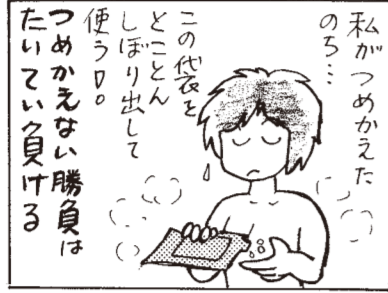 私がつめかえた
のち…
この袋を
とことん
しぼり出して
使う♡。
つめかえない勝負は
たいてい負ける